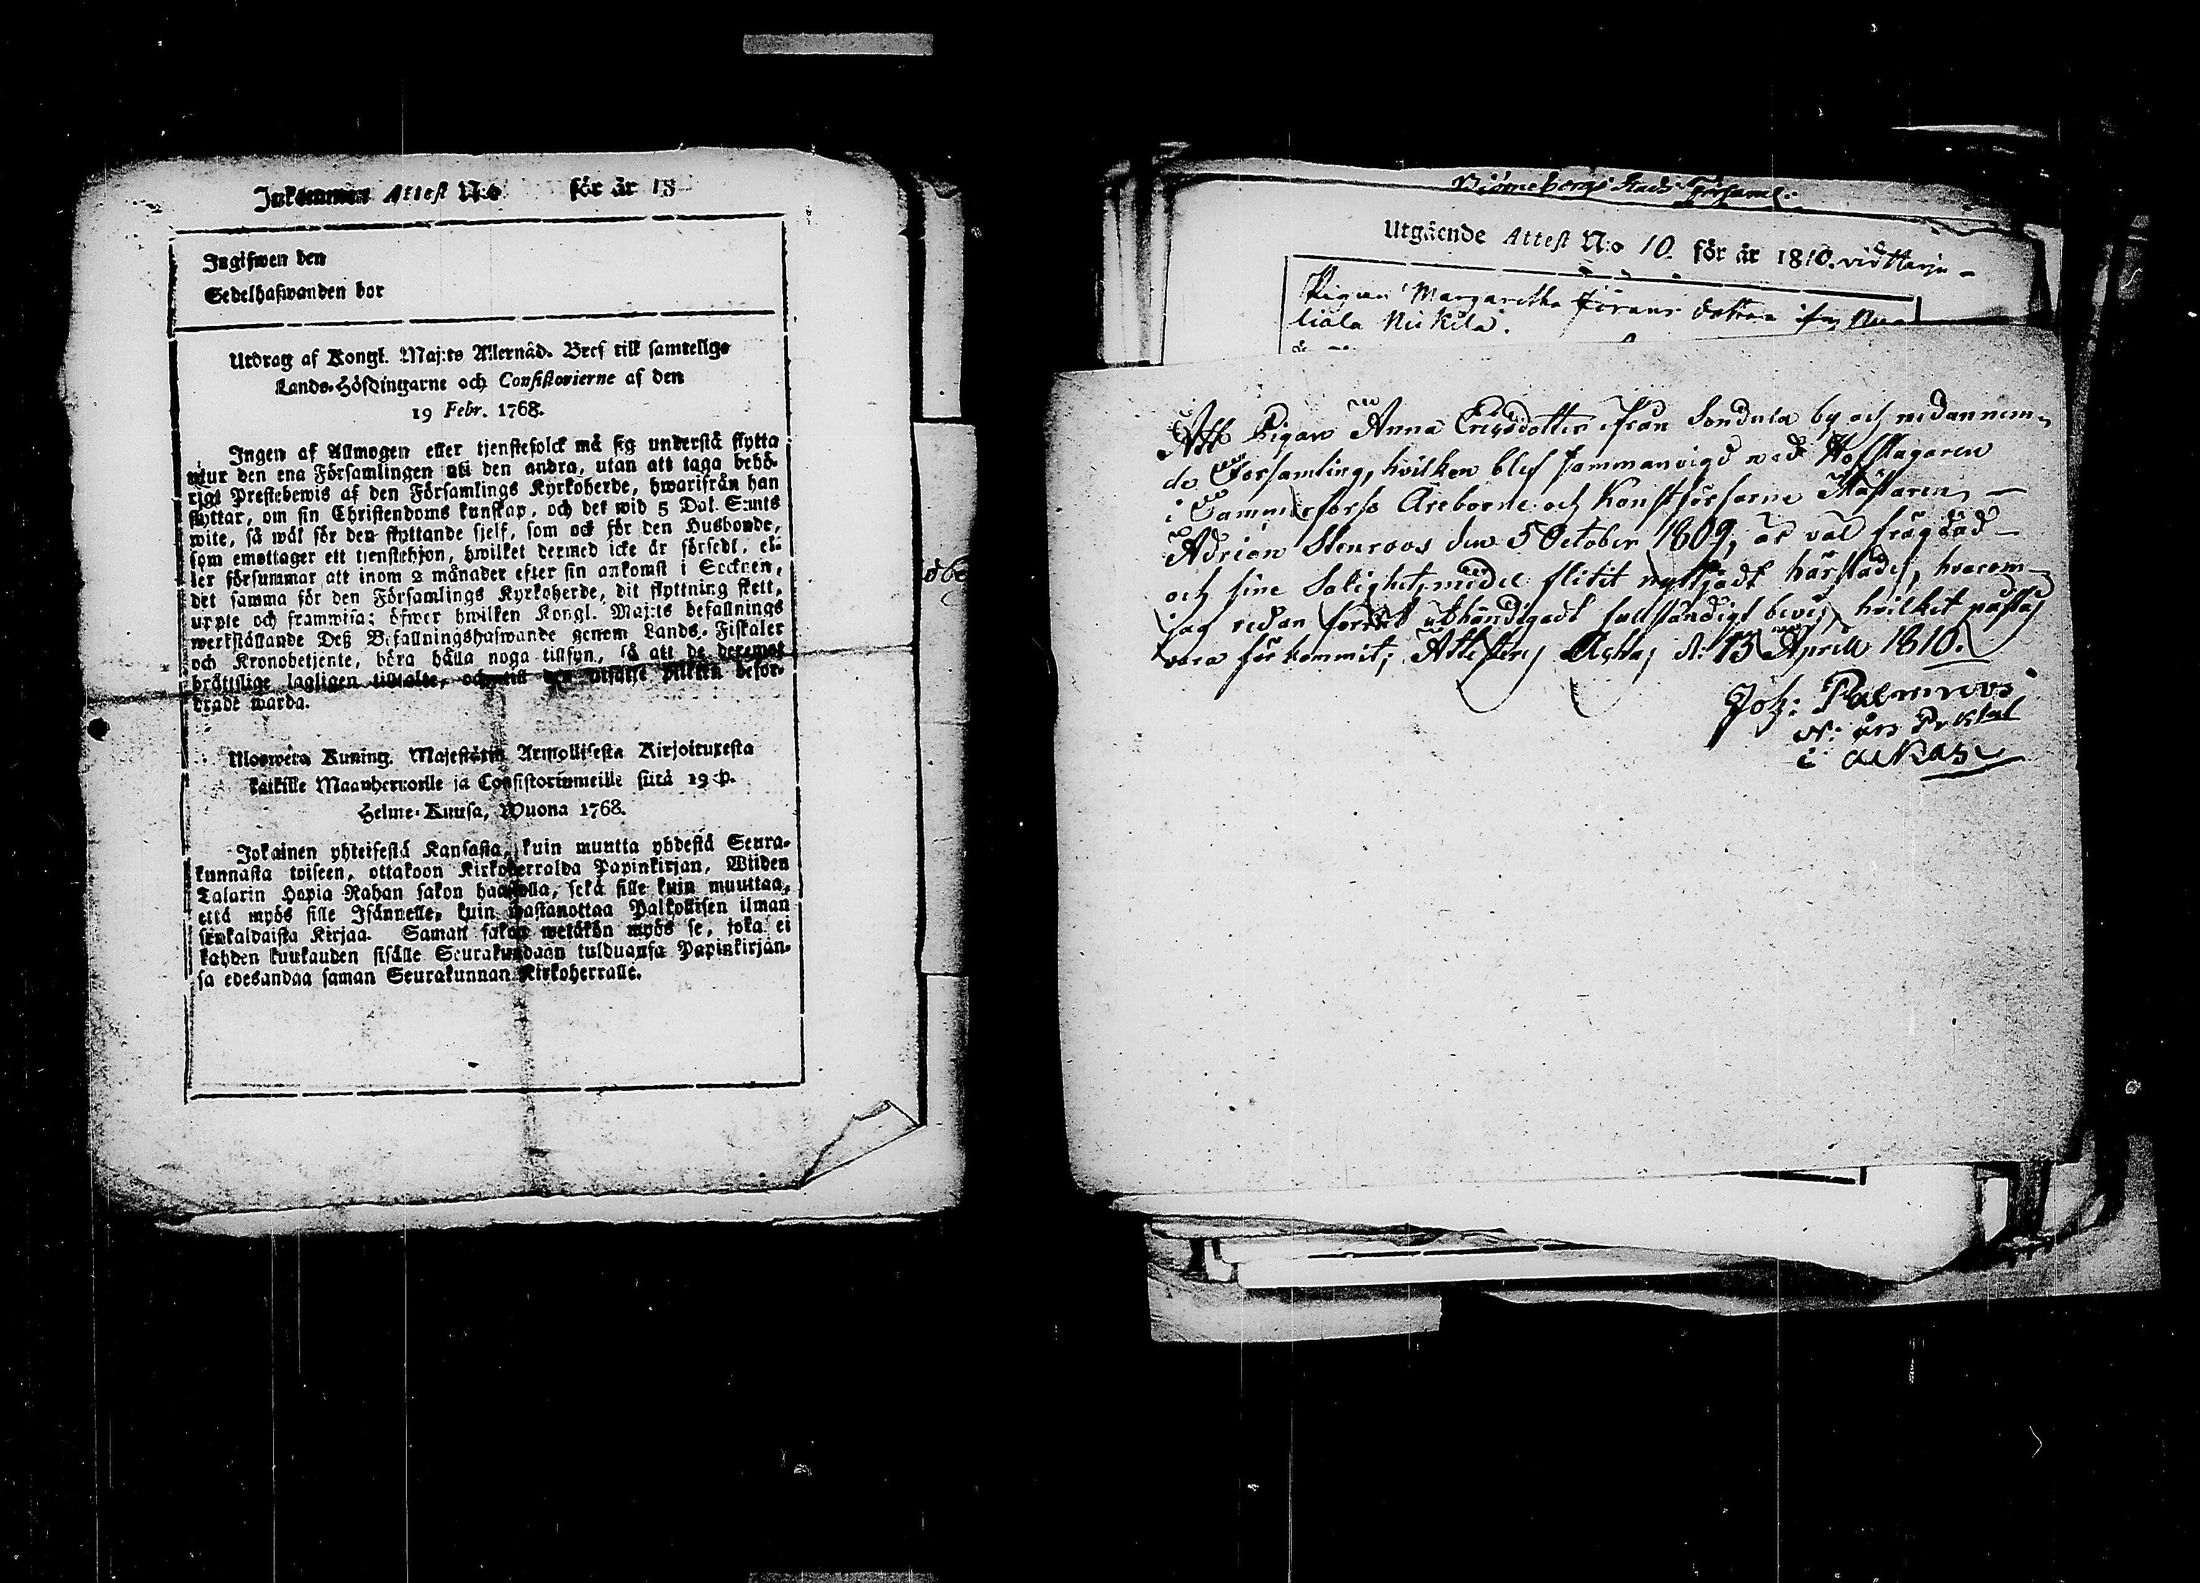 Inkommen Attest N:o för år 18
Ingifwen den
Sedelhafwanden bor
Utdrag af Kongl. Maj:ts Allernåd. Bref till samtelige
Lands-Höfdingarne och Consistorierne af den
19 Febr. 1768.
Ingen af Allmogen eller tjenstefolck må sig understå flytta
utur den ena Församlingen uti den andra, utan att taga behö-
rigt Prestebewis af den Församlings Kyrkoherde, hwarifrån han
flyttar, om sin Christendoms kunskap, och det wid 5 Dal. S:mts
wite, så wäl för den flyttande sjelf, som ock för den Husbonde,
som emottager ett tjenstehjon, hwilket dermed icke är försedt, el-
ler försummar att inom 2 månader efter sin ankomst i Socknen,
det samma för den Församlings Kyrkoherde, dit flyttning skett,
uppte och framwisa; öfwer hwilken Kongl. Maj:ts befallnings
werkställande Deß Befallningshafwande genom Lands-Fiskaler
och Kronobetjente, böra hålla noga tillsyn, så att de deremot
bråttslige lagligen tilltalte, och till den utsatte plikten befor-
drade warda.
Uloswetä Kuning. Majestätin Armollisesta Kirjoituxesta
kaikille Maanherroille ja Consistoriumeille siitä 19 p.
Helme-Kuusa, Wuona 1768.
Jokainen yhteisestä Kansasta, kuin muutta yhdestä Seura-
kunnasta toiseen, ottakoon Kirkoherralda Papinkirjan, Wiiden
Talarin Hopia Rahan sakon haastolla, sekä sille kuin muuttaa,
että myös sille Isännelle, kuin wastanottaa Palkollisen ilman
senkaldaista Kirjaa. Saman sakon wetäkön myös se, joka ei
kahden kuukauden sisälle Seurakundaan tulduansa Papinkirjan-
sa edesandaa saman Seurakunnan Kirkoherralle.
Biörneborgs Stads Församl:
Utgående Attest N:o 10. för år 1810. vid Harju-
Pigan Margaretha Jörans dotter
liala Nickila.
Att Pigan Anna Ericsdotter ifrån Sondula by och nedannem-
de Församling, hvilken blef sammanvigd med Hofslagaren
i Tammerfors Åreborne och Konstförfarne Mästaren
Adrian Stenroos den 5 October 1809, är väl frägdad
och sine Salighets medel flitit nyttjadt härstädes, hvarom
jag redan förut uthändigadt fullständigt bevis, hvilket påstås
vara förkommit; Attesteras Ackas d: 13 Aprill 1810.
Joh: Palmroos
i Ackas